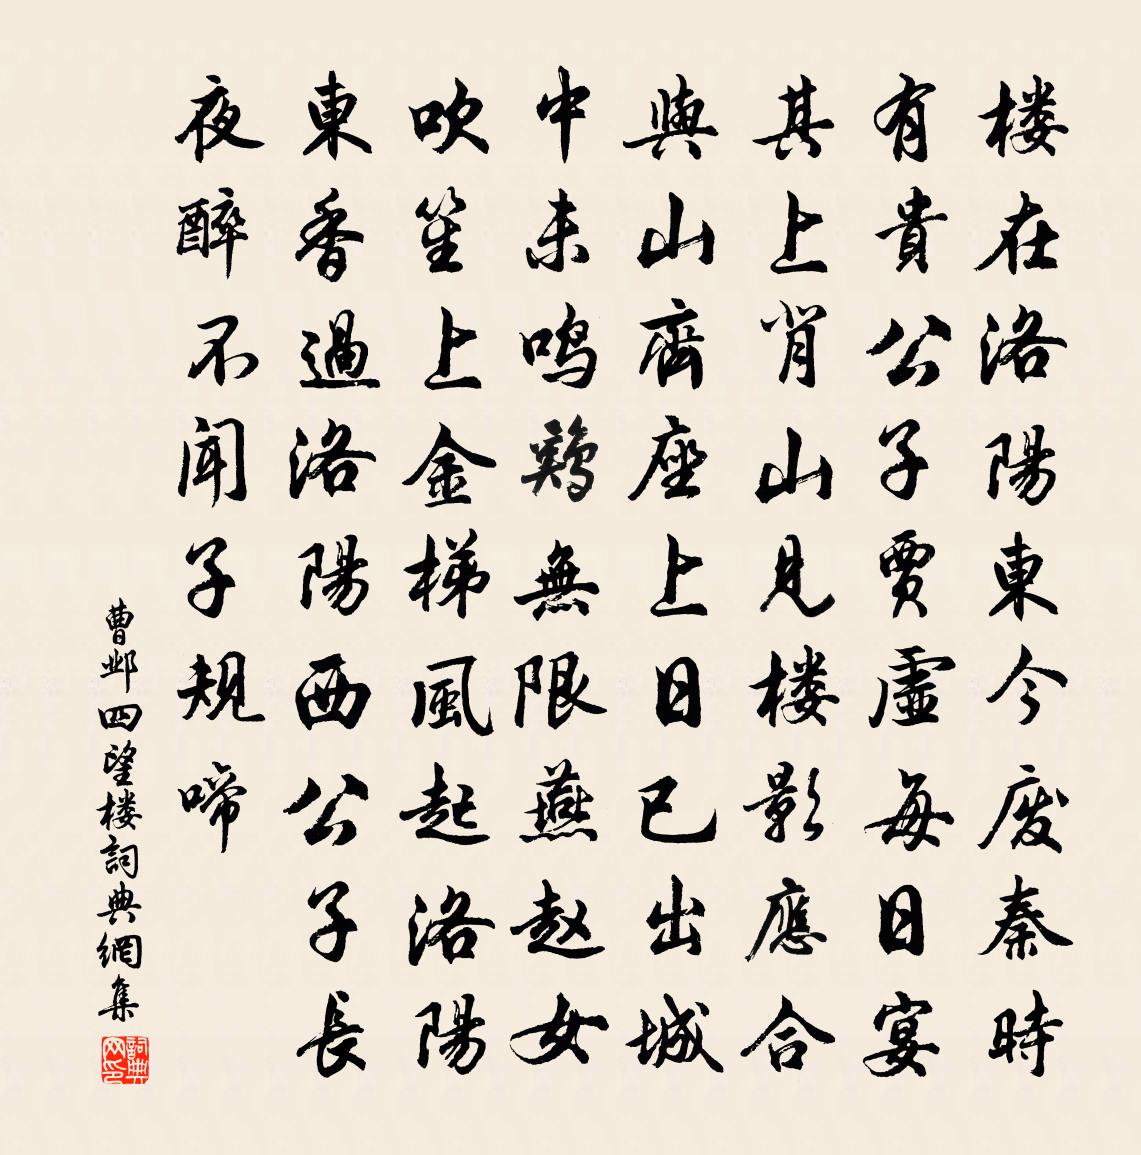 楼在洛陽東今废秦時
有貴公子賈虛每日宴
其上肖山見楼影應合
與山齊座上日已出城
中未鸣鷄無限燕赵女
吹笙上金梯風起洛陽
東香過洛陽西公子長
夜醉不聞子規啼
曹邺四望楼詞典網集
詞典网印